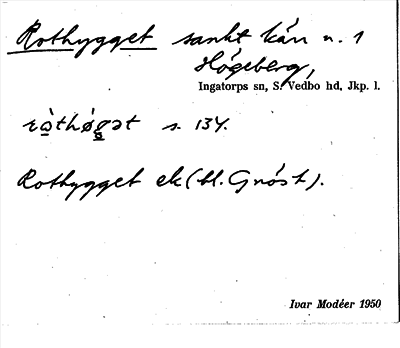 Rothygget sankt kärr n. 1
Högeberg,
Ingatorps sn, S. Vedbo hd, Jkp. l.
s. 134.
Rothygget ek (bl. Gnöst).
Ivar Modéer 1950